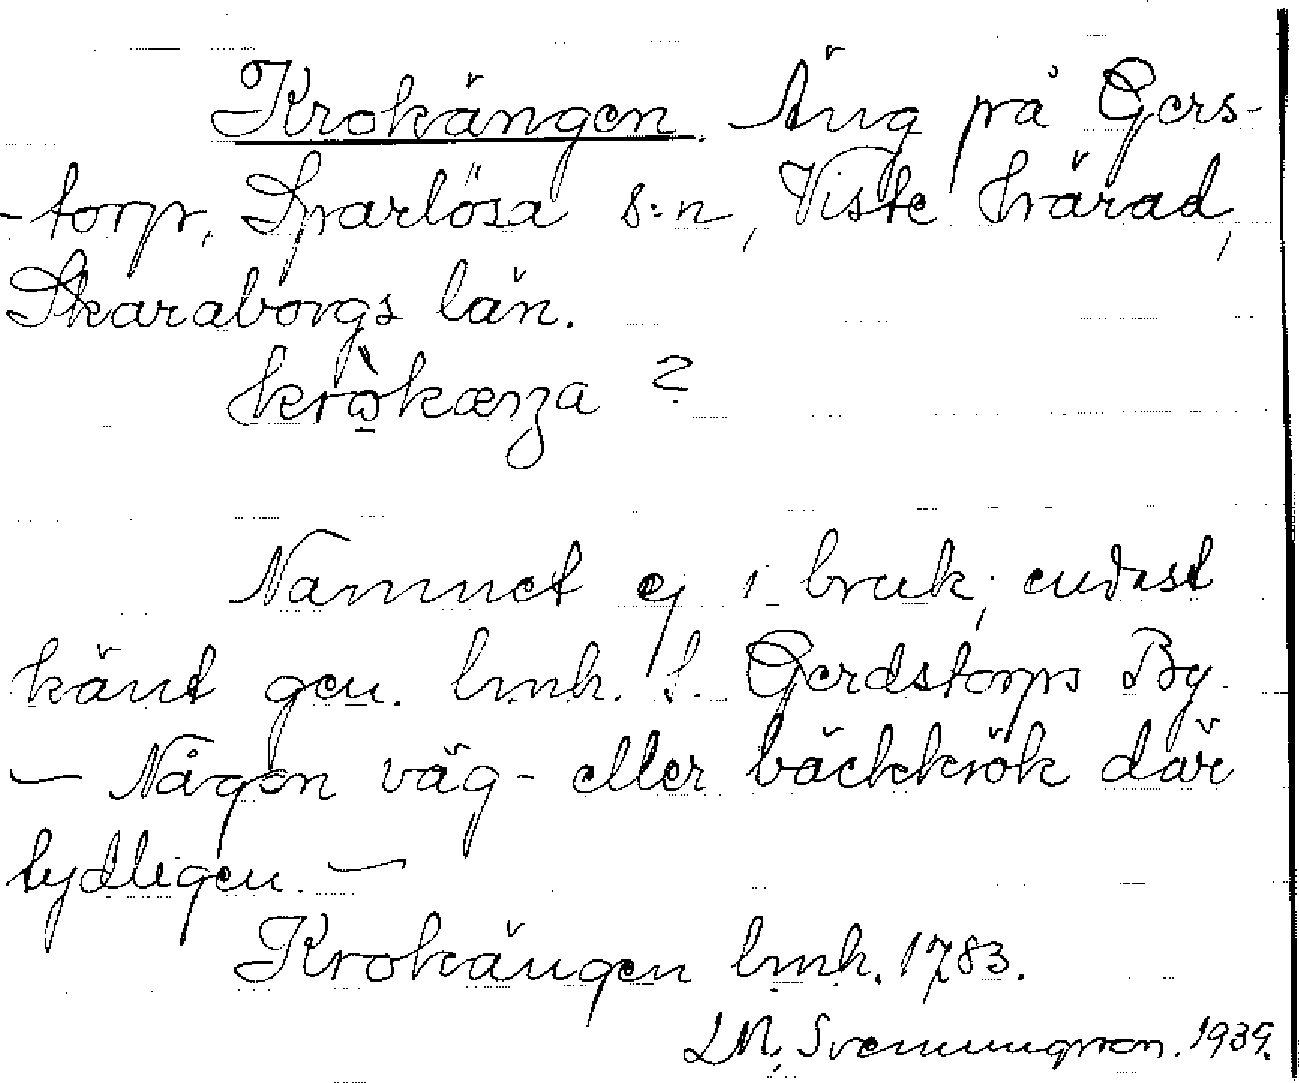 Krokängen. Äng på Gers-
-torp, Sparlösa s:n, Viste härad,
Skaraborgs län.
krò̱kæŋa ?
Namnet ej i bruk, endast
känt gen. lmk. f. Gerdstorps By.
— Någon väg- eller bäckkrök där
tydligen. —
Krokängen lmk. 1783.
LM, Svenungsson. 1939.